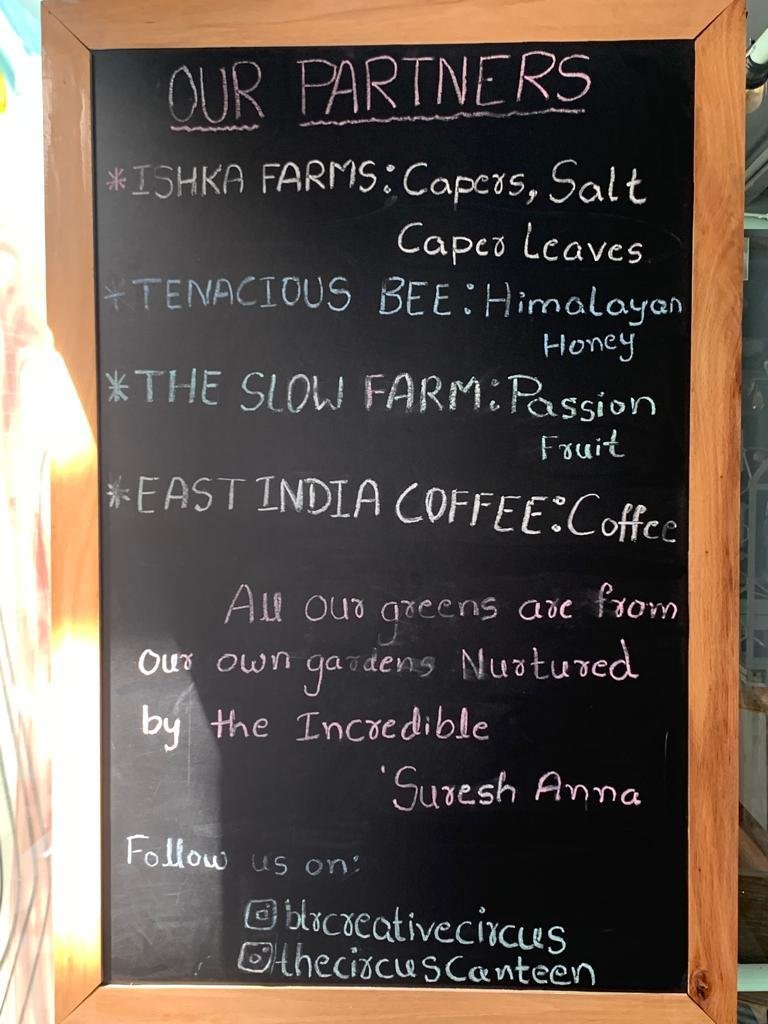 OUR PARTNERS
*ISHKA FARMS: Capers, Salt
Caper Leaves
*TENACIOUS BEE: Himalayan
Honey
*THE SLOW FARM: Passion
Fruit
*EAST INDIA COFFEE: Coffee
All our greens are from
our own gardens Nurtured
by the Incredible
'Suresh Anna
Follow us on:
blrcreativecircus
thecircuscanteen